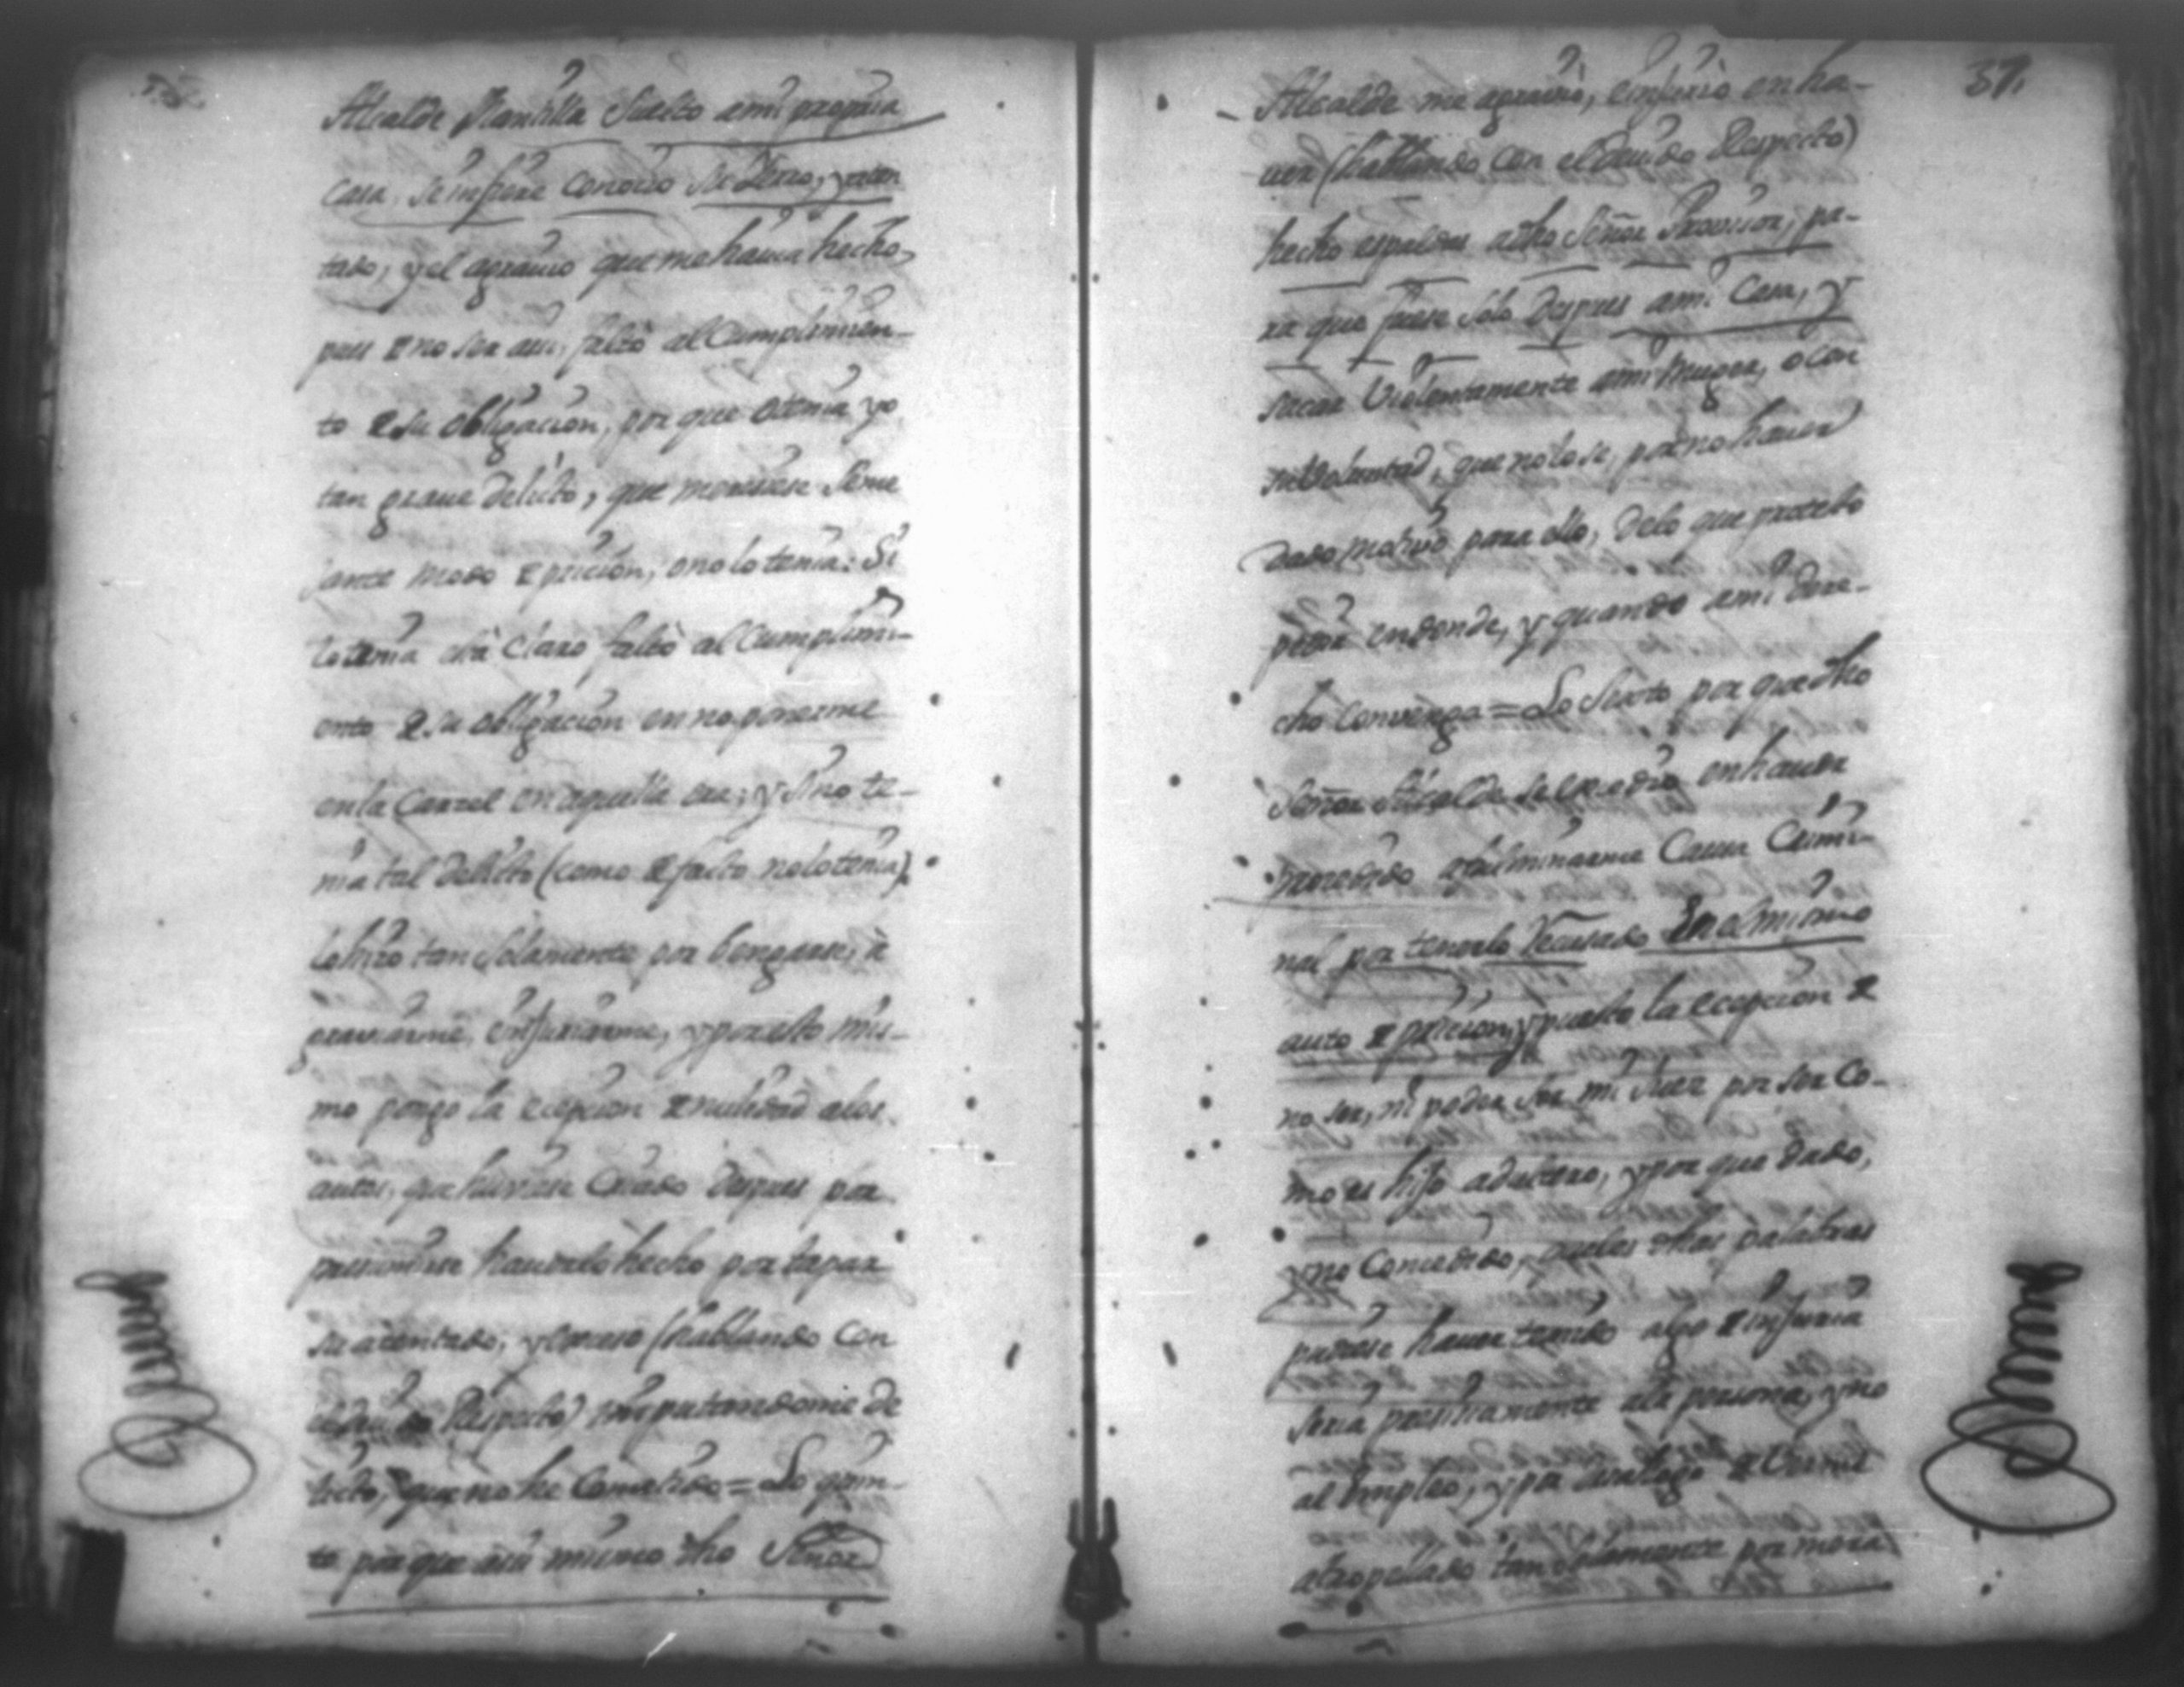 Alcalde Mantilla suelto ami propria
casa, se infiere conocio su Yerro, y aten
tado, y el agravio que me havia hecho,
pues de no ser asi, faltò al Cumplimien-
to de su obligacion, por que ô tenia yo
tan grave delicto, que mereciese seme
jante modo de pricion, o no lo tenia: Si
lo tenia està claro faltò al Cumplimi-
ento de su obligacion en no ponerme
en la Carzel en aquella ora; y si no te-
nia tal delicto (como de facto no lo tenia)
lo hizo tan solamente por bengarse, à
graviarme, è injuriarme, y por esto mis-
mo pongo la ecepcion de nulidad a los
autos, que huviese Criado despues por
presumirse haverlo hecho por tapar
su atentado, y exceso (hablando con
el devido Respecto) imputandome de
licto, que no he Cometido = Lo quin-
to por que asi mismo dho Señor
37.
Alcalde me agraviò, è injuriò en ha-
ver (hablando con el devido Respecto)
hecho espaldas a dho Señor Provisor, pa-
ra que fuese solo despues a mi Casa, y
sacar Violentamente a mi Muger, o con
su Voluntad, que no lo se, por no haver
dado motivo para ello, de lo que protesto
pedir en donde, y quando a mi dere-
cho convenga = Lo Sexto por que dho
Señor Alcalde se excedio en haver
procedido a fulminarme Causa Crimi-
nal por tenerlo Recusado En el mismo
auto de pricion, y puesto la ecepcion de
no ser, ni poder ser mi Juez por ser Co-
mo es hijo adultero, y por que dado,
y no Concedido, que las dhas palabras
pudiese haver tenido algo de injuria
seria precisamente a la persona, y no
al Empleo, y por
atropellado tan solamente por mera